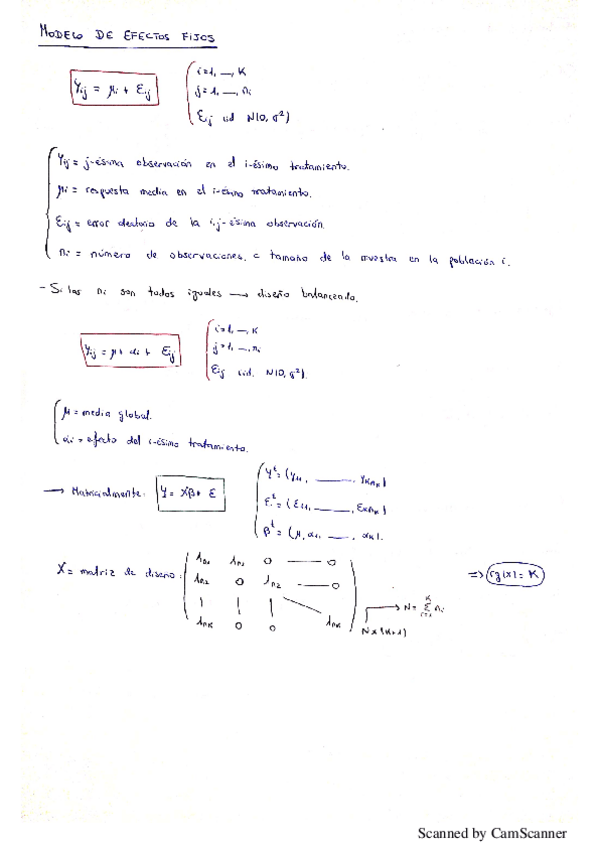 MODELO DE EFECTOS FIJOS
Yij = μi + εij
i=1, —, K
j=1, —, ni
εij iid N(0, σ²)
Yij = j-ésima observación en el i-ésimo tratamiento.
μi = respuesta media en el i-ésimo tratamiento.
εij = error aleatorio de la i,j-ésima observación.
ni = número de observaciones, o tamaño de la muestra en la población i.
- Si las ni son todos iguales → diseño balanceado.
Yij = μ + αi + εij
i=1, —, K
j=1, —, ni
εij iid. N(0, σ²).
μ = media global.
αi = efecto del i-ésimo tratamiento.
→ Matricialmente: Y = Xβ + ε
Yᵗ = (Y11, ——, YKnK)
εᵗ = (ε11, ——, εKnK)
βᵗ = (μ, α1, —, αK).
X = matriz de diseño:
1n1 1n1 0 —— 0
1n2 0 1n2 —— 0
1nK 0 0 1nK
N×(K+1)
→ N = Σ ni
K
i=1
⇒ rg(X) = K
Scanned by CamScanner